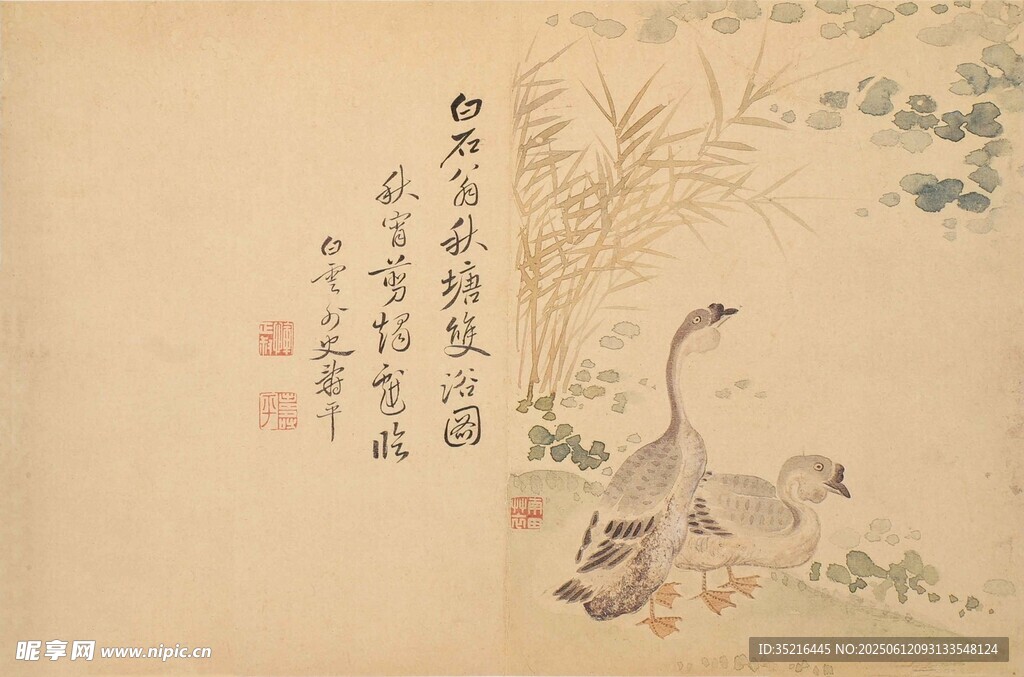 白石翁秋塘雙浴圖
秋宵剪燭戲臨
白雲外史壽平
壽平
昵享网 www.nipic.cn
ID:35216445 NO:20250612093133548124